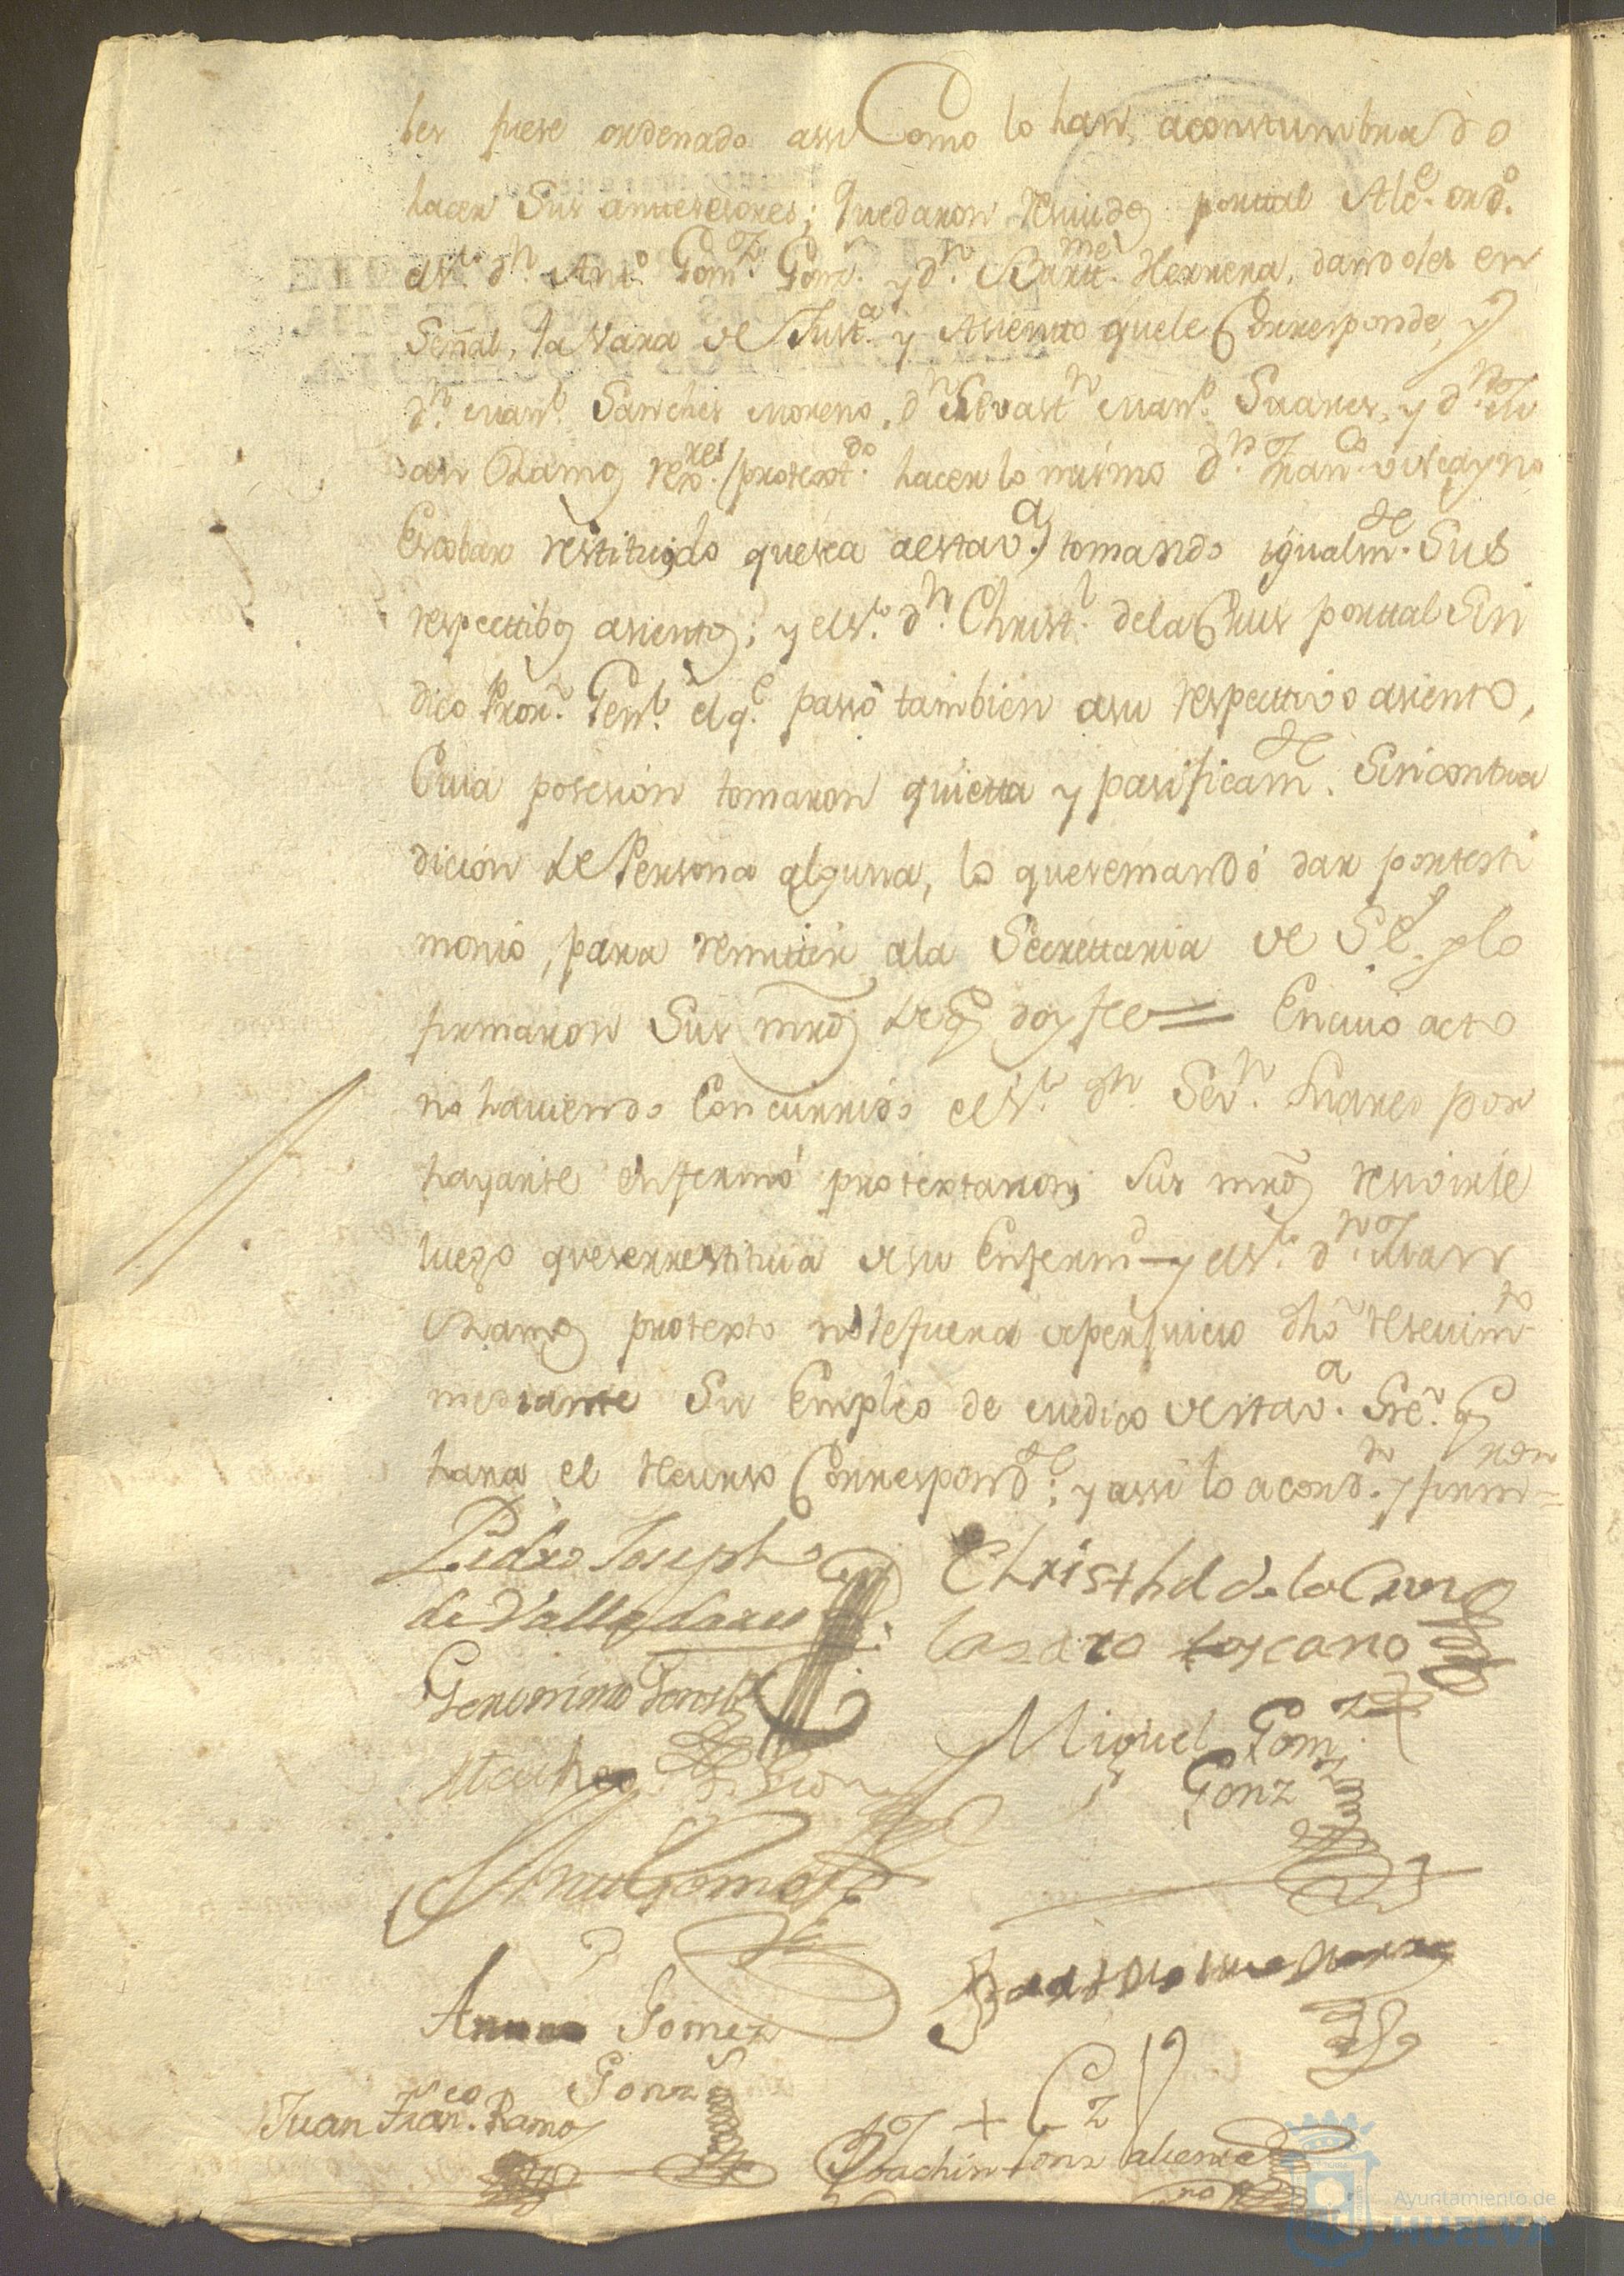 les fuese ordenado assi Como lo han acontumbrado
hacer Sus antesesores; Quedaron resiuidos por tal Alce. ordo.
el Sr. dn. Anto. Gomz. Gonz. y dn. Bartme. Herrera, dandoles en
Señal, la Vara de Justa. y Asiento que le Corresponde, y
dn. Manl. Sanches Moreno, dn Sevastn Manl. Suares, y dn. Ju
an Ramos rexres. (protextdo. hacer lo mismo dn. Franco. viscayno
Escobar restituydo que sea a esta va.) tomando igualmte. Sus
respecttibos asientos; y el Sr. dn. Christl. de la Crus por tal Sin
dico Pror. Genl. el qe. passo tambien a su respecttivo asiento,
Cuia posesion tomaron quietta y pasificamte. Sin contra
dicion de Persona alguna, lo que se mandó dar por testi
monio, para remittir a la Secrettaria de S. E. y lo
firmaron Sus mrds de q doy fee = En cuio acto
no haviendo Concurrido el Sr. dn. Sevn. Suares por
hayarse enfermo protextaron sus mrds resivirle
luego que se rrestituia de su Enfermd y el Sr. dn. Juan
Ramos protexto no le fuera de perjuicio dho resevimto
mediante Su Empleo de Medico de esta va. Sre. q
hara el recurso Correspondte; y assi lo acordn. y firmaron =
Pedro Joseph
de Valladares
Christhl de la Crus
Lasaro toscano
Geronimo
Miguel Gomz
Gonz
Matheo
Gomes
Bartolome Herrera
Anto Gomez
Gonz
Juan Franco. Ramos
Joachin
Ayuntamiento de
HUELVA